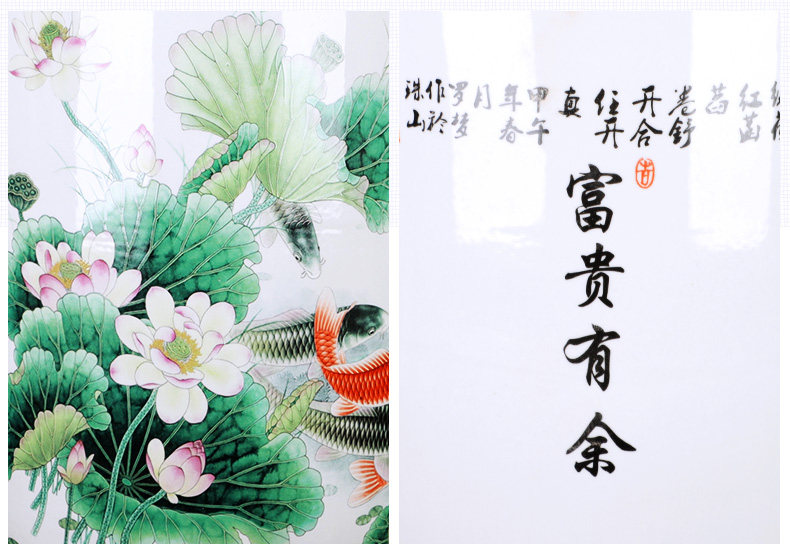 红菡
萏
卷舒
开合
任
真
甲午
年春
月
罗梦
作於
珠山
吉
富贵有余